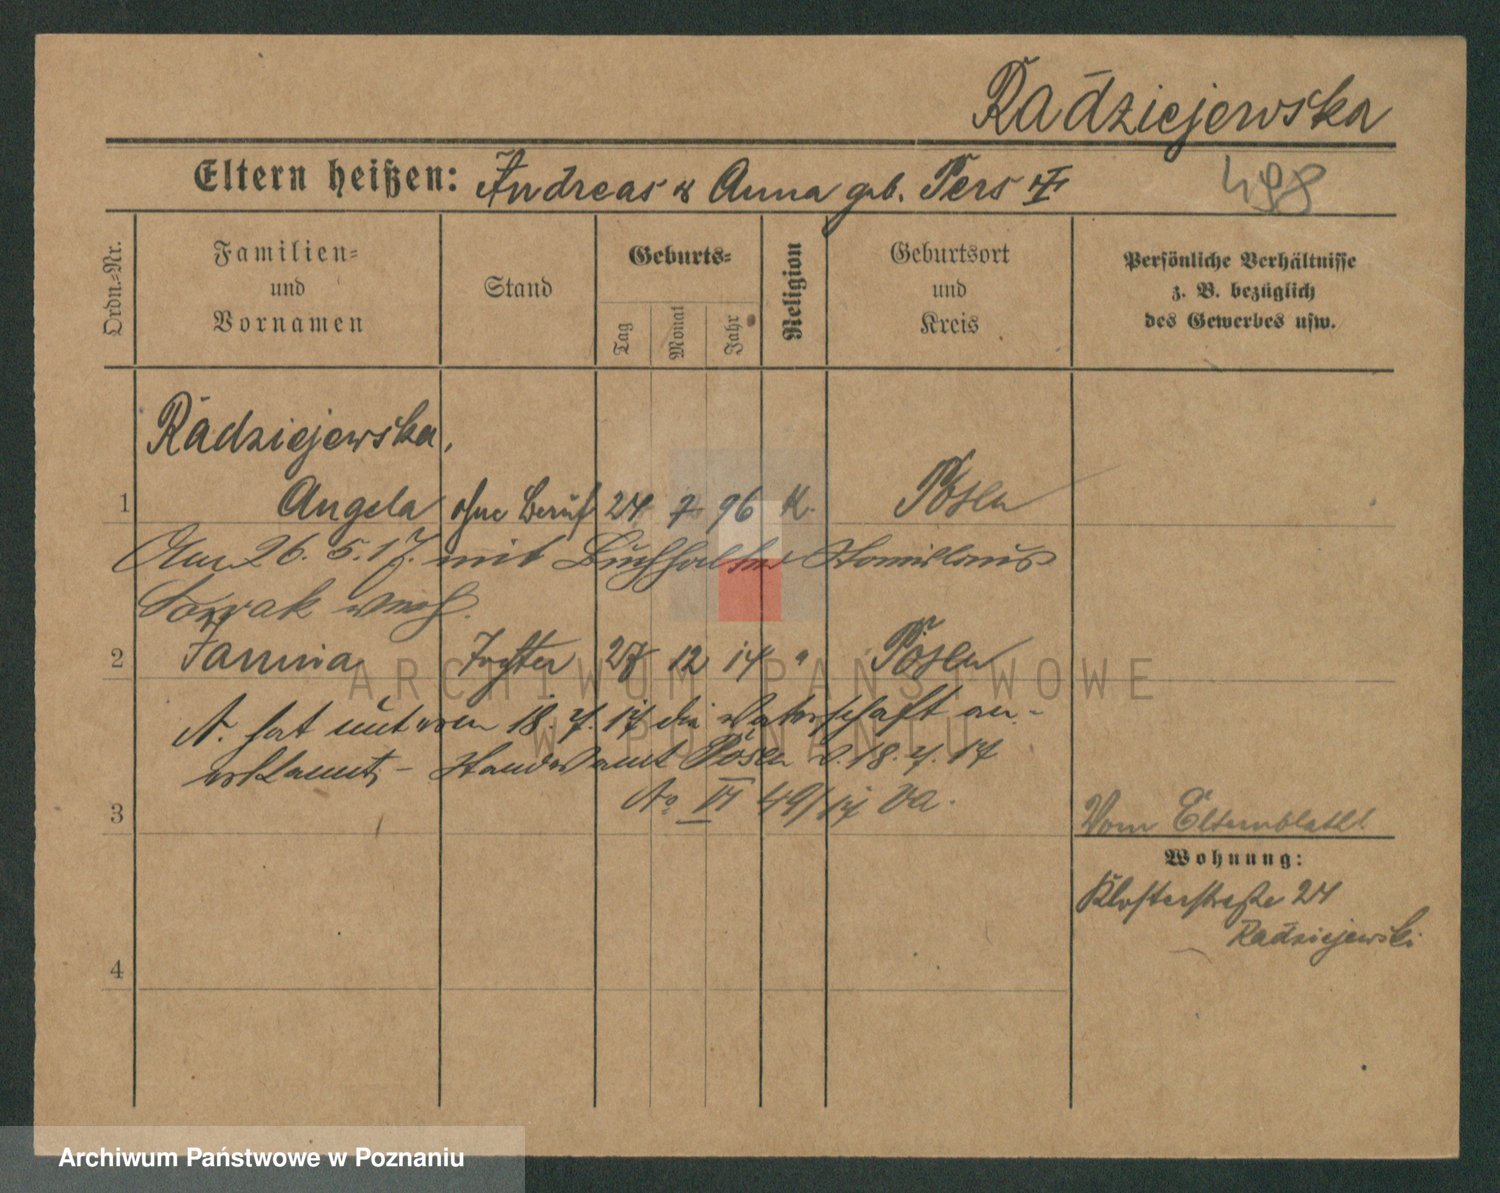 Radziejewska
Eltern heißen: Andreas & Anna geb. Pers
498
Ordn.-Nr.
Familien-
und
Vornamen
Stand
Geburts-
Tag
Monat
Jahr
Religion
Geburtsort
und
Kreis
Persönliche Verhältnisse
z. B. bezüglich
des Gewerbes usw.
Radziejewska,
1 Angela ohne Beruf 24 7 96 K. Posen
Am 26. 5. 17. mit Buchhalter
2 Janina Tochter 27 12 14 " Posen
N. hat unterm 18. 4. 17 die Vaterschaft an-
erkannt, - Standesamt Posen v. 18. 4. 17
No VI 49/17
3
Vom Elternblatt
Wohnung:
Klosterstraße 24
Radziejewski
4
ARCHIWUM PAŃSTWOWE
W POZNANIU
Archiwum Państwowe w Poznaniu